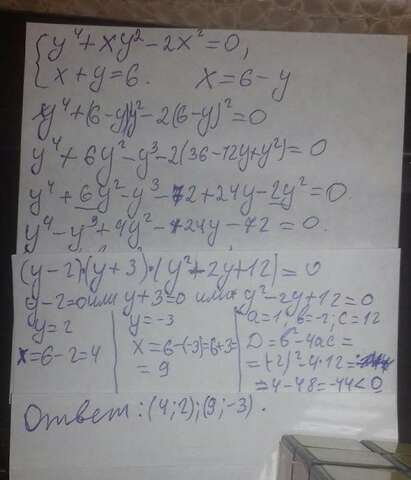 { y⁴ + xy² - 2x² = 0,
x + y = 6. x = 6 - y
y⁴ + (6 - y)y² - 2(6 - y)² = 0
y⁴ + 6y² - y³ - 2(36 - 12y + y²) = 0
y⁴ + 6y² - y³ - 72 + 24y - 2y² = 0
y⁴ - y³ + 4y² + 24y - 72 = 0.
(y - 2)(y + 3)·(y² - 2y + 12) = 0
y - 2 = 0 или y + 3 = 0 или y² - 2y + 12 = 0
y = 2 y = -3 a = 1, b = -2; c = 12
x = 6 - 2 = 4 x = 6 - (-3) = 6 + 3 = D = b² - 4ac =
= 9 = (-2)² - 4·12 =
= 4 - 48 = -44 < 0
Ответ: (4; 2); (9; -3).